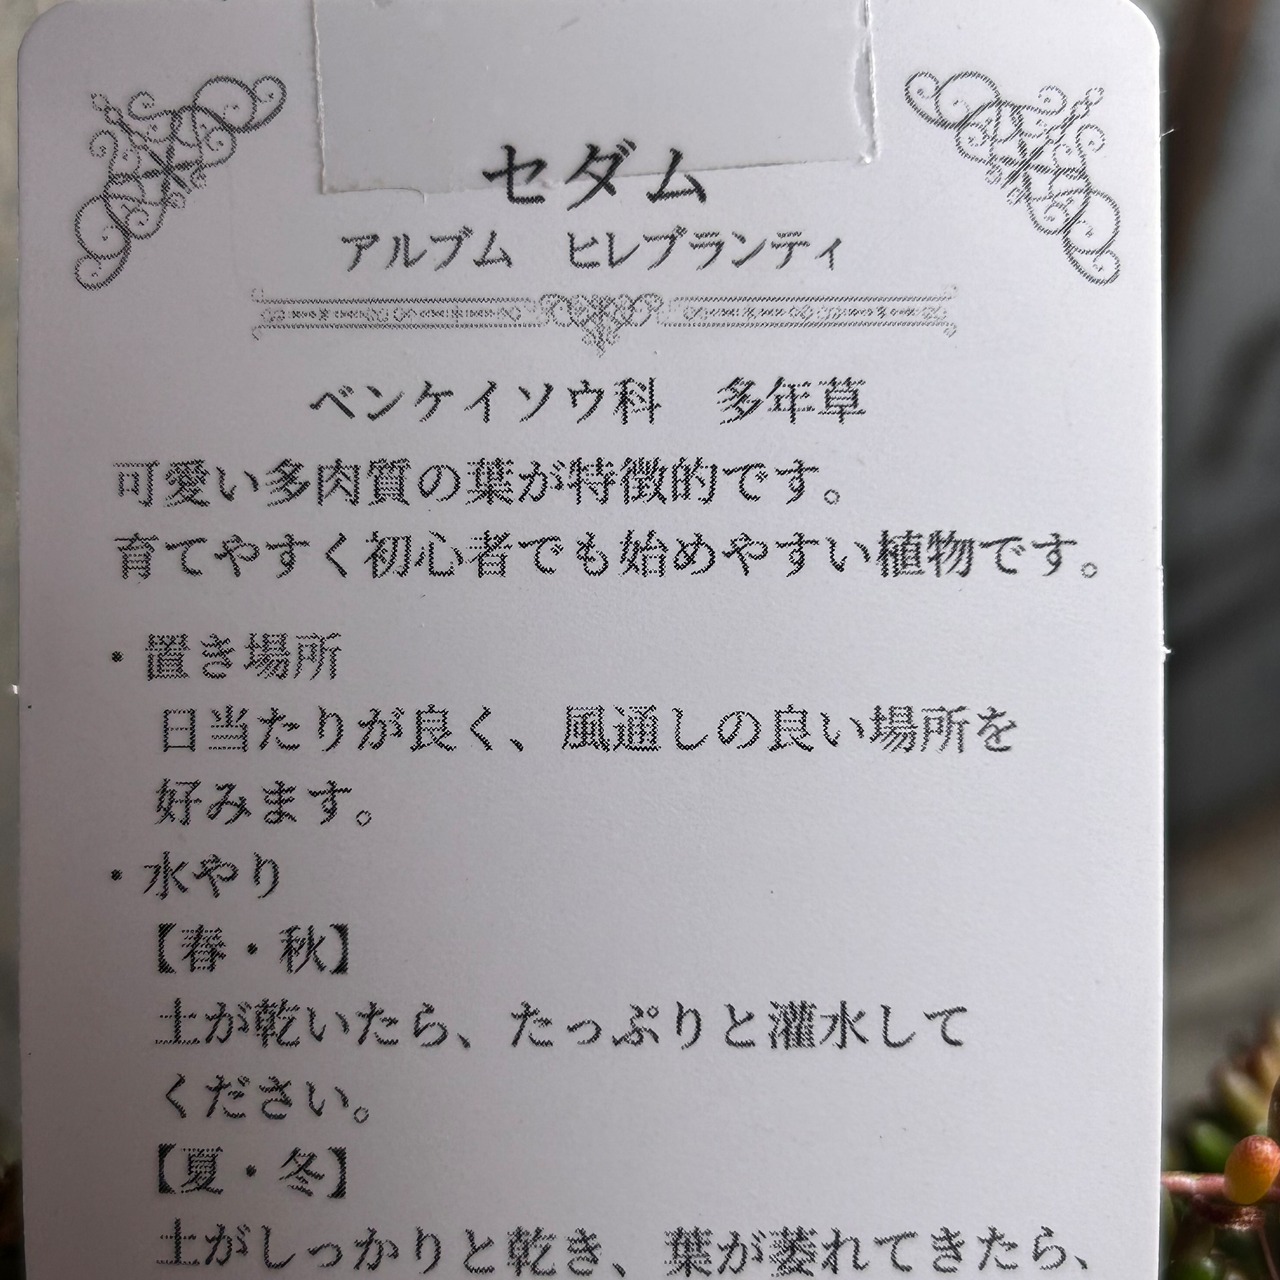 セダム
アルブム　ヒレブランティ
ベンケイソウ科　多年草
可愛い多肉質の葉が特徴的です。
育てやすく初心者でも始めやすい植物です。
・置き場所
日当たりが良く、風通しの良い場所を
好みます。
・水やり
【春・秋】
土が乾いたら、たっぷりと灌水して
ください。
【夏・冬】
土がしっかりと乾き、葉が萎れてきたら、